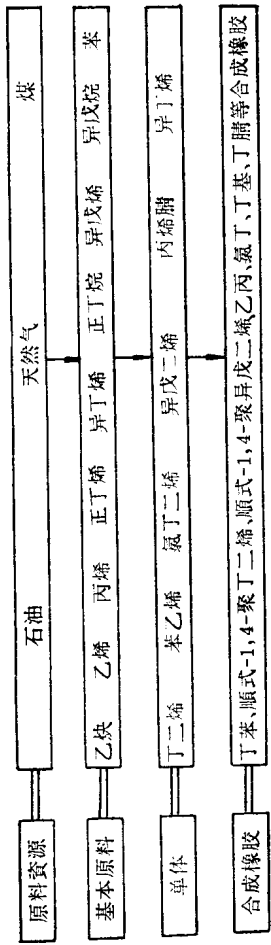 原料資源 石油 天然气 煤
基本原料 乙炔 乙烯 丙烯 正丁烯 异丁烯 正丁烷 异戊烯 异戊烷 苯
单体 丁二烯 苯乙烯 氯丁二烯 异戊二烯 丙烯腈 异丁烯
合成橡胶 丁苯、順式-1,4-聚丁二烯、順式-1,4-聚异戊二烯、乙丙、氯丁、丁基、丁腈等合成橡胶